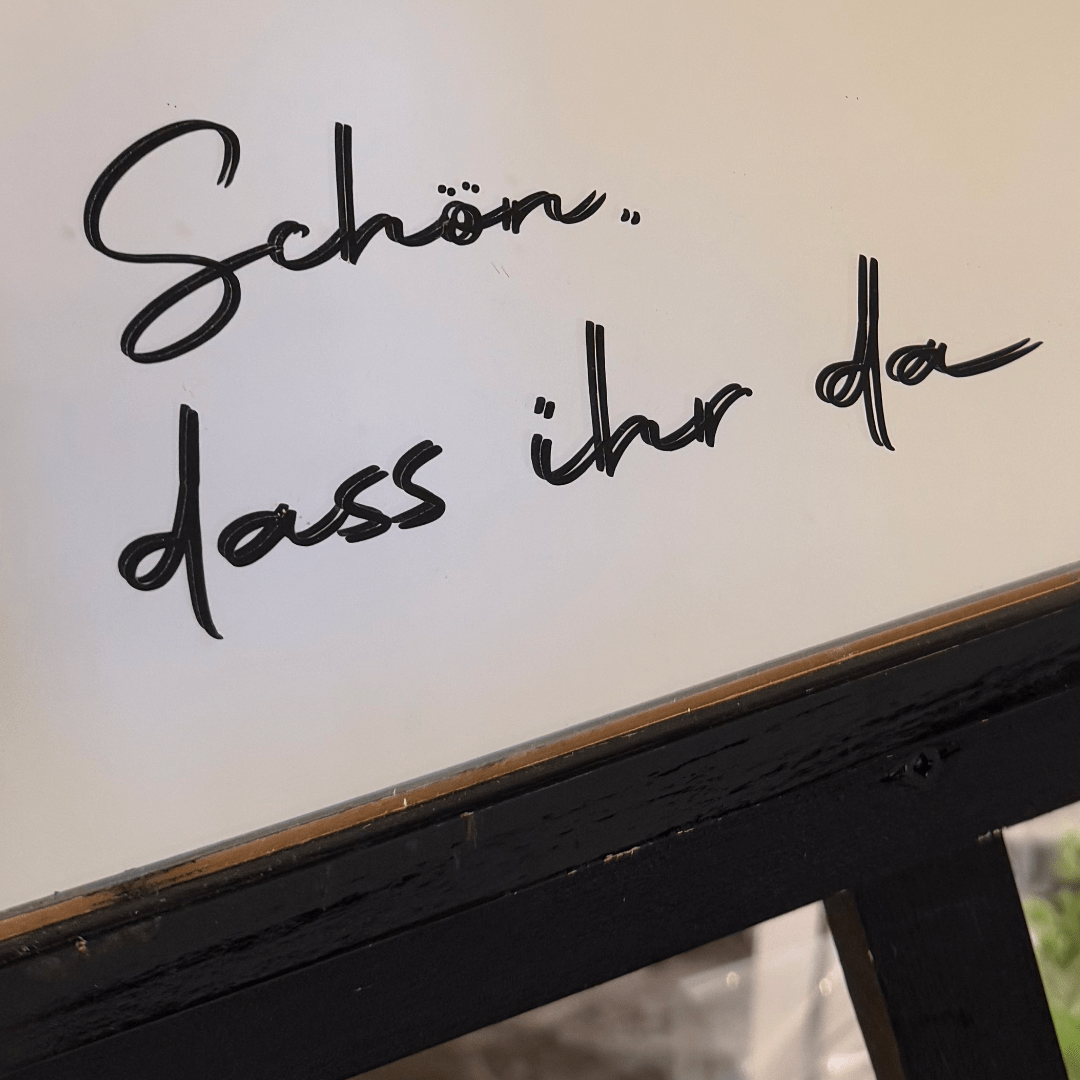 Schön..
dass ihr da